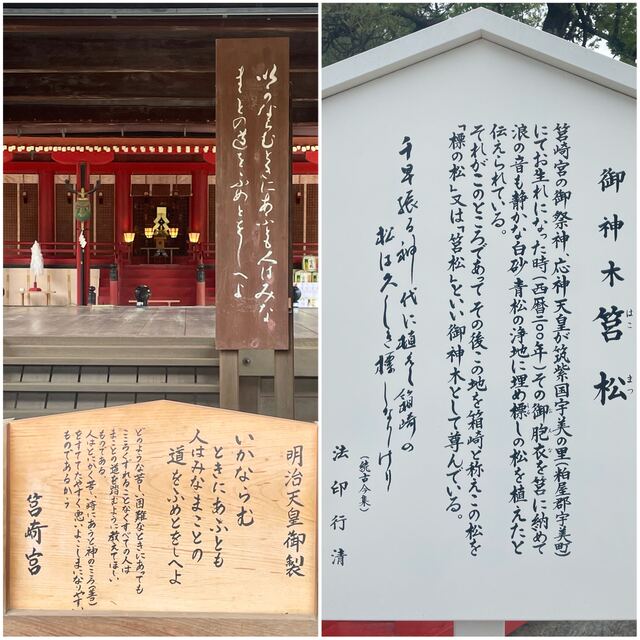 いかならむときにあふとも人はみな
まことの道をふめとをしへよ
明治天皇御製
いかならむ
ときにあふとも
人はみなまことの
道をふめとをしへよ
どのような苦しい困難なときにあっても
こころくずれることなくすべての人は
まことの道を踏むように教えてほしい
ものである
人はとにかく苦しい時にあうと神のこころ(善)
をすててたやすく思いよこしまになりやすい
ものであるから
筥崎宮
御神木筥松
はこ まつ
筥崎宮の御祭神、応神天皇が筑紫国宇美の里(柏屋郡宇美町)
にてお生れになった時(西暦二〇〇年)その御胞衣を筥に納めて
浪の音も静かな白砂青松の浄地に埋め標しの松を植えたと
伝えられている。
それがこのところであって その後この地を箱崎と称えこの松を
「標の松」又は「筥松」といい御神木として尊んでいる。
千早振る神代に植えし箱崎の
松は久しき標しなりけり
(続古今集)
法印行清